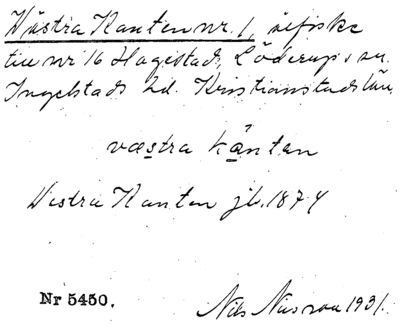 Västra Kanten nr. 1, ålfiske
till nr 16 Hagestad, Löderups sn.
Ingelstads hd. Kristianstads län
væstra kạnten
Vestra Kanten jb. 1874
Nr 5450.
Nils Nilsson 1931.